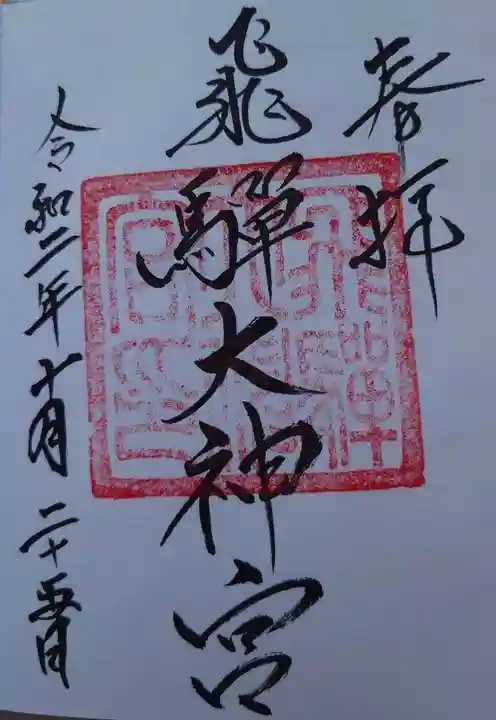 奉拝
飛騨大神宮
令和二年十月二十五日